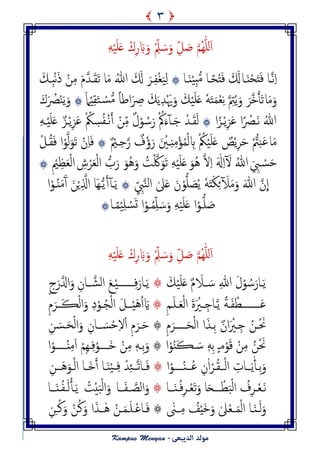 ﴿ ٣ ﴾
اَللّٰهُمَّ صَلِّ وَسَلِّمْ وَبَارِكْ عَلَيْهِ
اِنَّا فَتَحْنَا لَكَ فَتْحًا مُّبِيْنًا ۞ لِيَغْفِرَ لَكَ اللهُ مَا تَقَدَّمَ مِنْ ذَنْۢبِكَ
وَمَا تَاَخَّرَ وَيُتِمَّ نِعْمَتَهٗ عَلَيْكَ وَيَهْدِيَكَ صِرَاطًا مُّسْتَقِيْمًا ۞ وَيَنْصُرَكَ
اللهُ نَصْرًا عَزِيْزًا ۞ لَقَدْ جَآءَكُمْ رَسُوْلٌ مِّنْ اَنْفُسِكُمْ عَزِيْزٌ عَلَيْهِ
مَا عَنِتُّمْ حَرِيْصٌ عَلَيْكُمْ بِالْمُؤْمِنِيْنَ رَءُوْفٌ رَّحِيْمٌ ۞ فَاِنْ تَوَلَّوْا فَقُلْ
حَسْبِيَ اللهُ لَآ اِلٰهَ اِلَّا هُوَ عَلَيْهِ تَوَكَّلْتُ وَهُوَ رَبُّ الْعَرْشِ الْعَظِيْمِ ۞
اِنَّ اللهَ وَمَلَآئِكَتَهٗ يُصَلُّوْنَ عَلَى النَّبِيِّ يٰٓاَيُّهَا الَّذِيْنَ اٰمَنُوْا
صَلُّوْا عَلَيْهِ وَسَلِّمُوْا تَسْلِيْمًا ۞
اَللّٰهُمَّ صَلِّ وَسَلِّمْ وَبَارِكْ عَلَيْهِ
يَارَسُوْلَ اللهِ سَلَامٌ عَلَيْكَ ۞ يَارَفِيْعَ الشَّانِ وَالدَّرَجِ
عَطْفَةً يَّاجِيْرَةَ الْعَلَمِ ۞ يَا اُهَيْلَ الْجُوْدِ وَالْكَرَمِ
نَحْنُ جِيْرَانٌ بِذَا الْحَرَمِ ۞ حَرَمِ الْاِحْسَانِ وَالْحَسَنِ
نَحْنُ مِنْ قَوْمٍ بِهِ سَكَنُوْا ۞ وَبِهِ مِنْ خَوْفِهِمْ اَمِنُوْا
وَبِاٰيَاتِ الْقُرْاٰنِ عُنُوْا ۞ فَاتَّئِدْ فِيْنَا اَخَا الْوَهَنِ
نَعْرِفُ الْبَطْحَا وَتَعْرِفُنَا ۞ وَالصَّفَا وَالْبَيْتُ يَأْلَفُنَا
وَلَنَا الْمَعْلٰى وَخَيْفُ مِنٰى ۞ فَاعْلَمَنْ هٰذَا وَكُنْ وَكُنِ
Kampus Menyan - مولد الديبعى